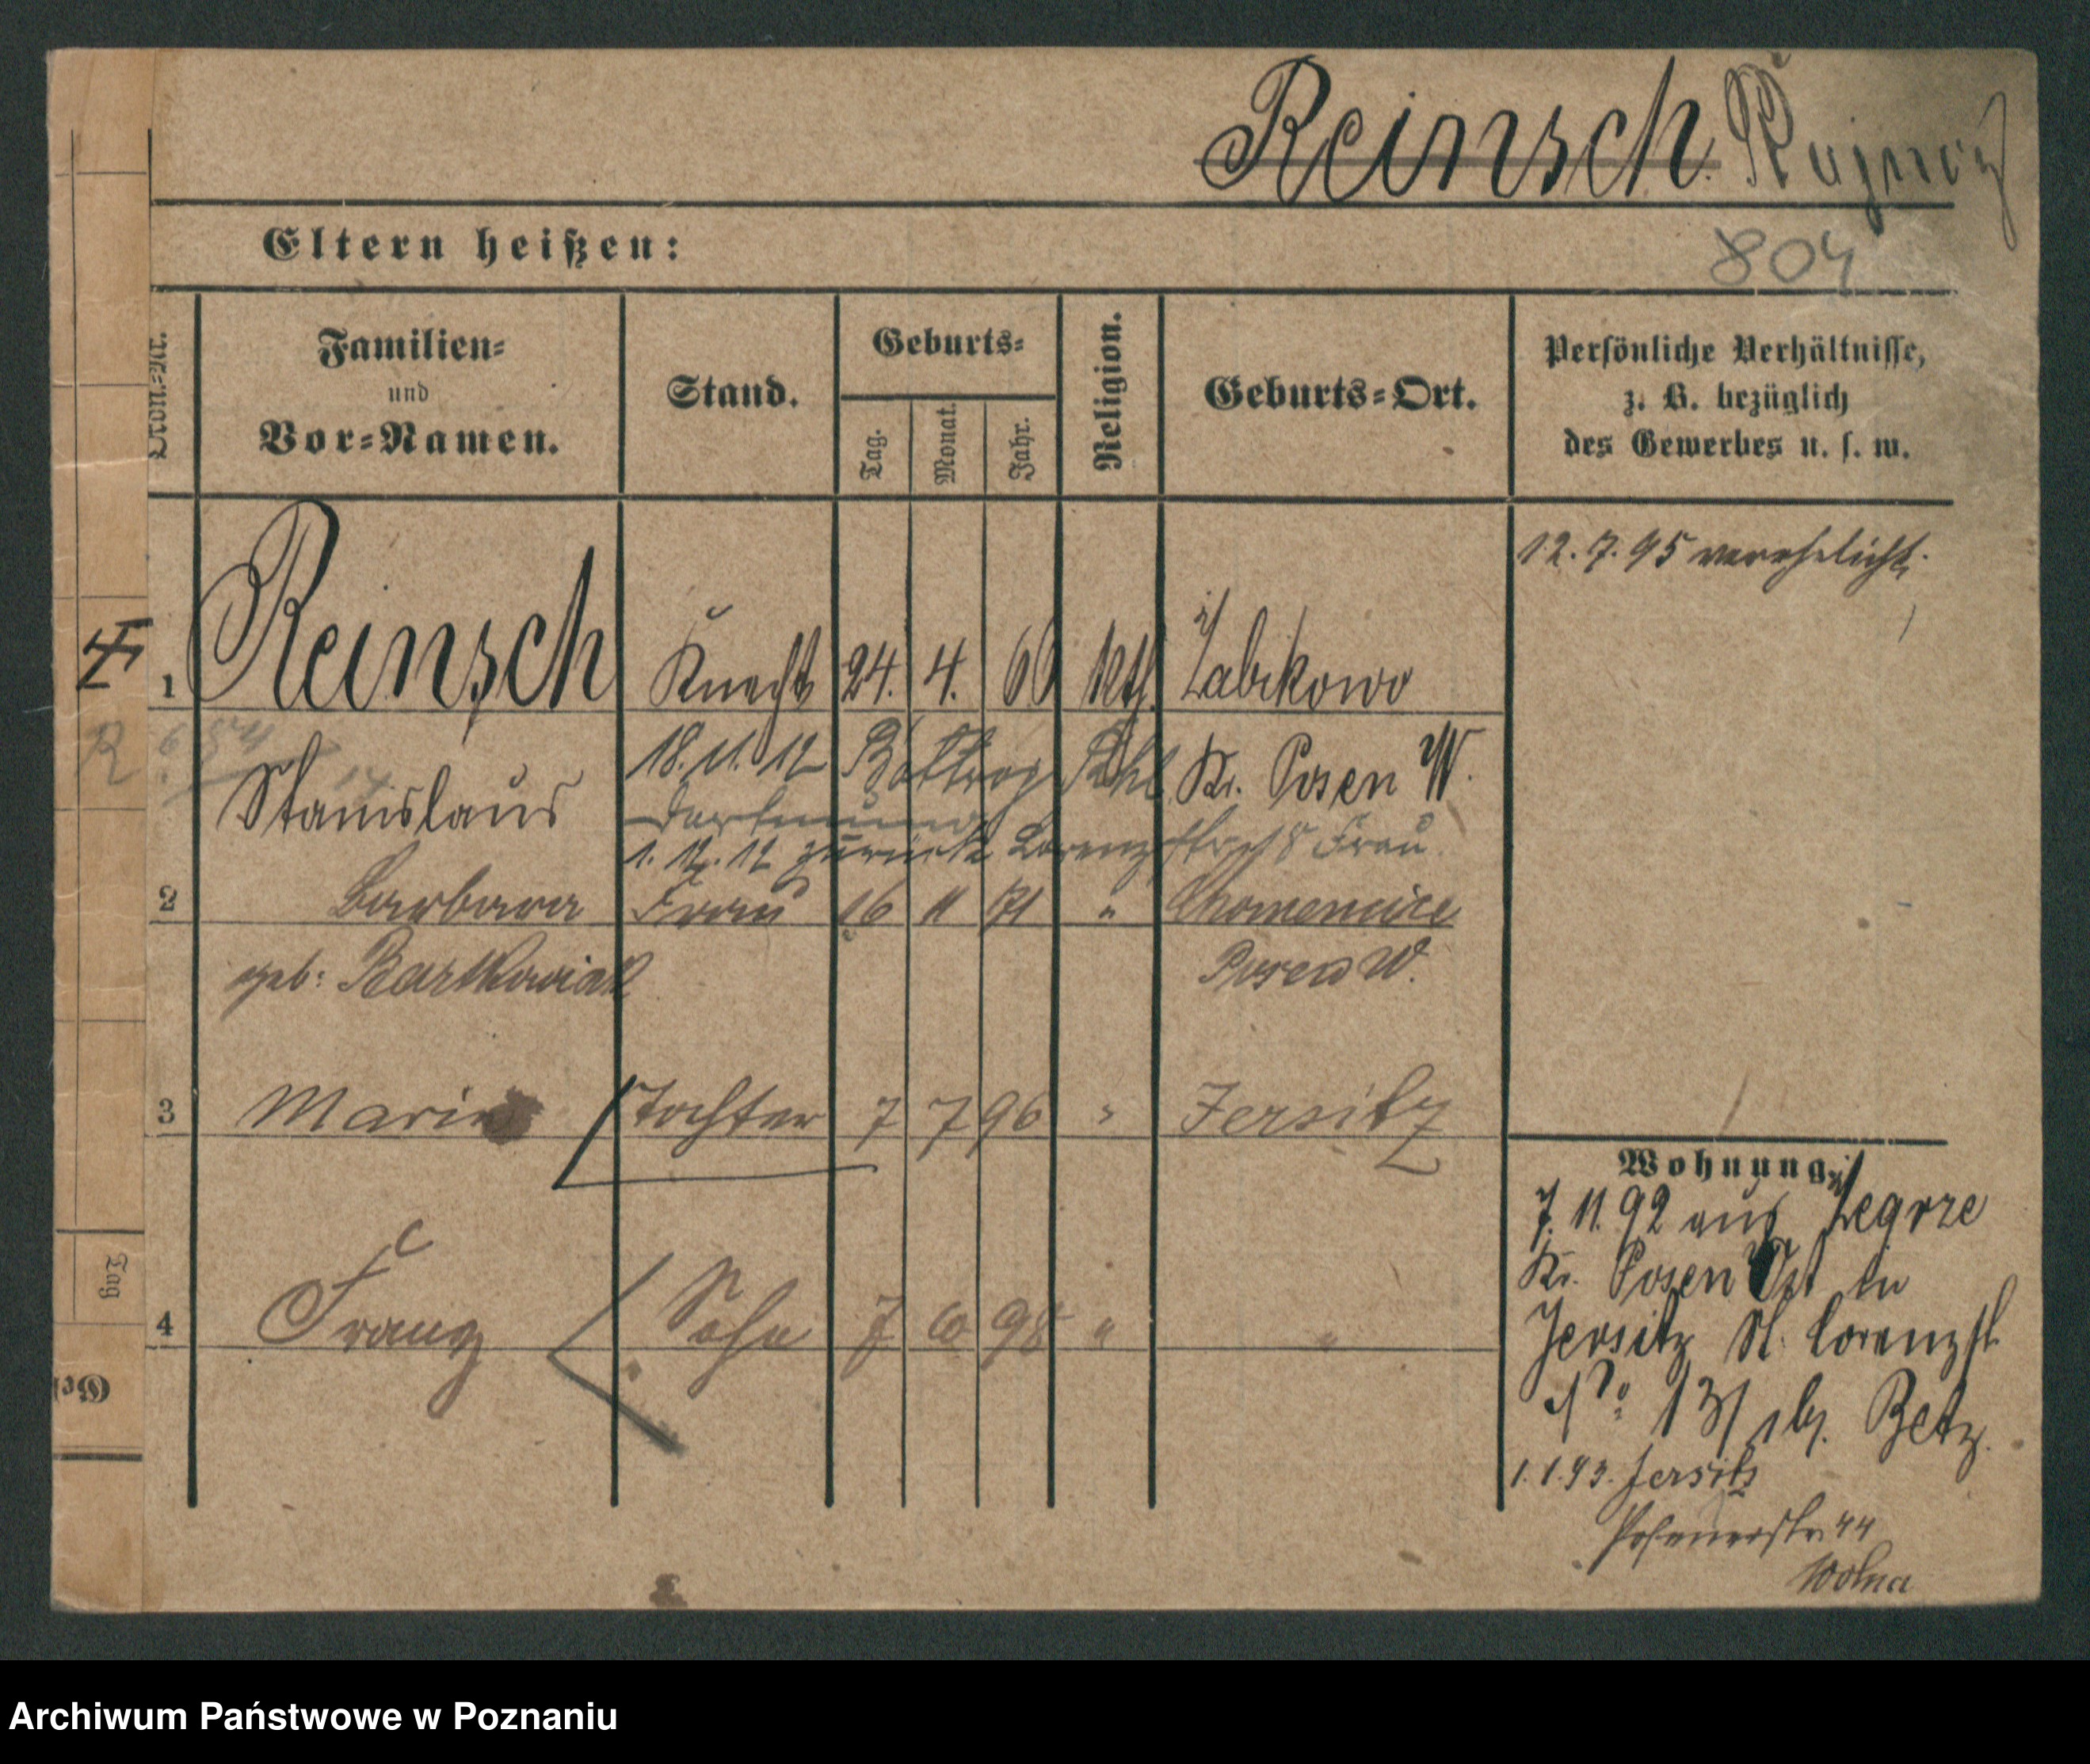 Reinsch.
804
Eltern heißen:
Ordn.-Nr.
Familien-
und
Vor-Namen.
Stand.
Geburts-
Tag.
Monat.
Jahr.
Religion.
Geburts-Ort.
Persönliche Verhältnisse,
z. B. bezüglich
des Gewerbes u. s. w.
12.7.95 verehelicht.
1 Reinsch Knecht 24. 4. 66 kth. Żabikowo
R
Stanislaus Kr. Posen W.
18.11.12 Bottrop
Dortmund
1.12.12 zurück Lorenzstr 18 Frau
2 Barbara Frau 16 11 71 "
geb: Bartkowiak Posen W.
3 Marie Tochter 7 7 96 " Jersitz
4 Franz Sohn 7 98 " "
Wohnung.
7.11.92 aus Zegrze
Kr. Posen Ost in
Jersitz St. Lorenzst.
No 13/ b. Betz.
1.1.93. Jersitz
Posenerstr. 44
Wolna
Tag
Archiwum Państwowe w Poznaniu